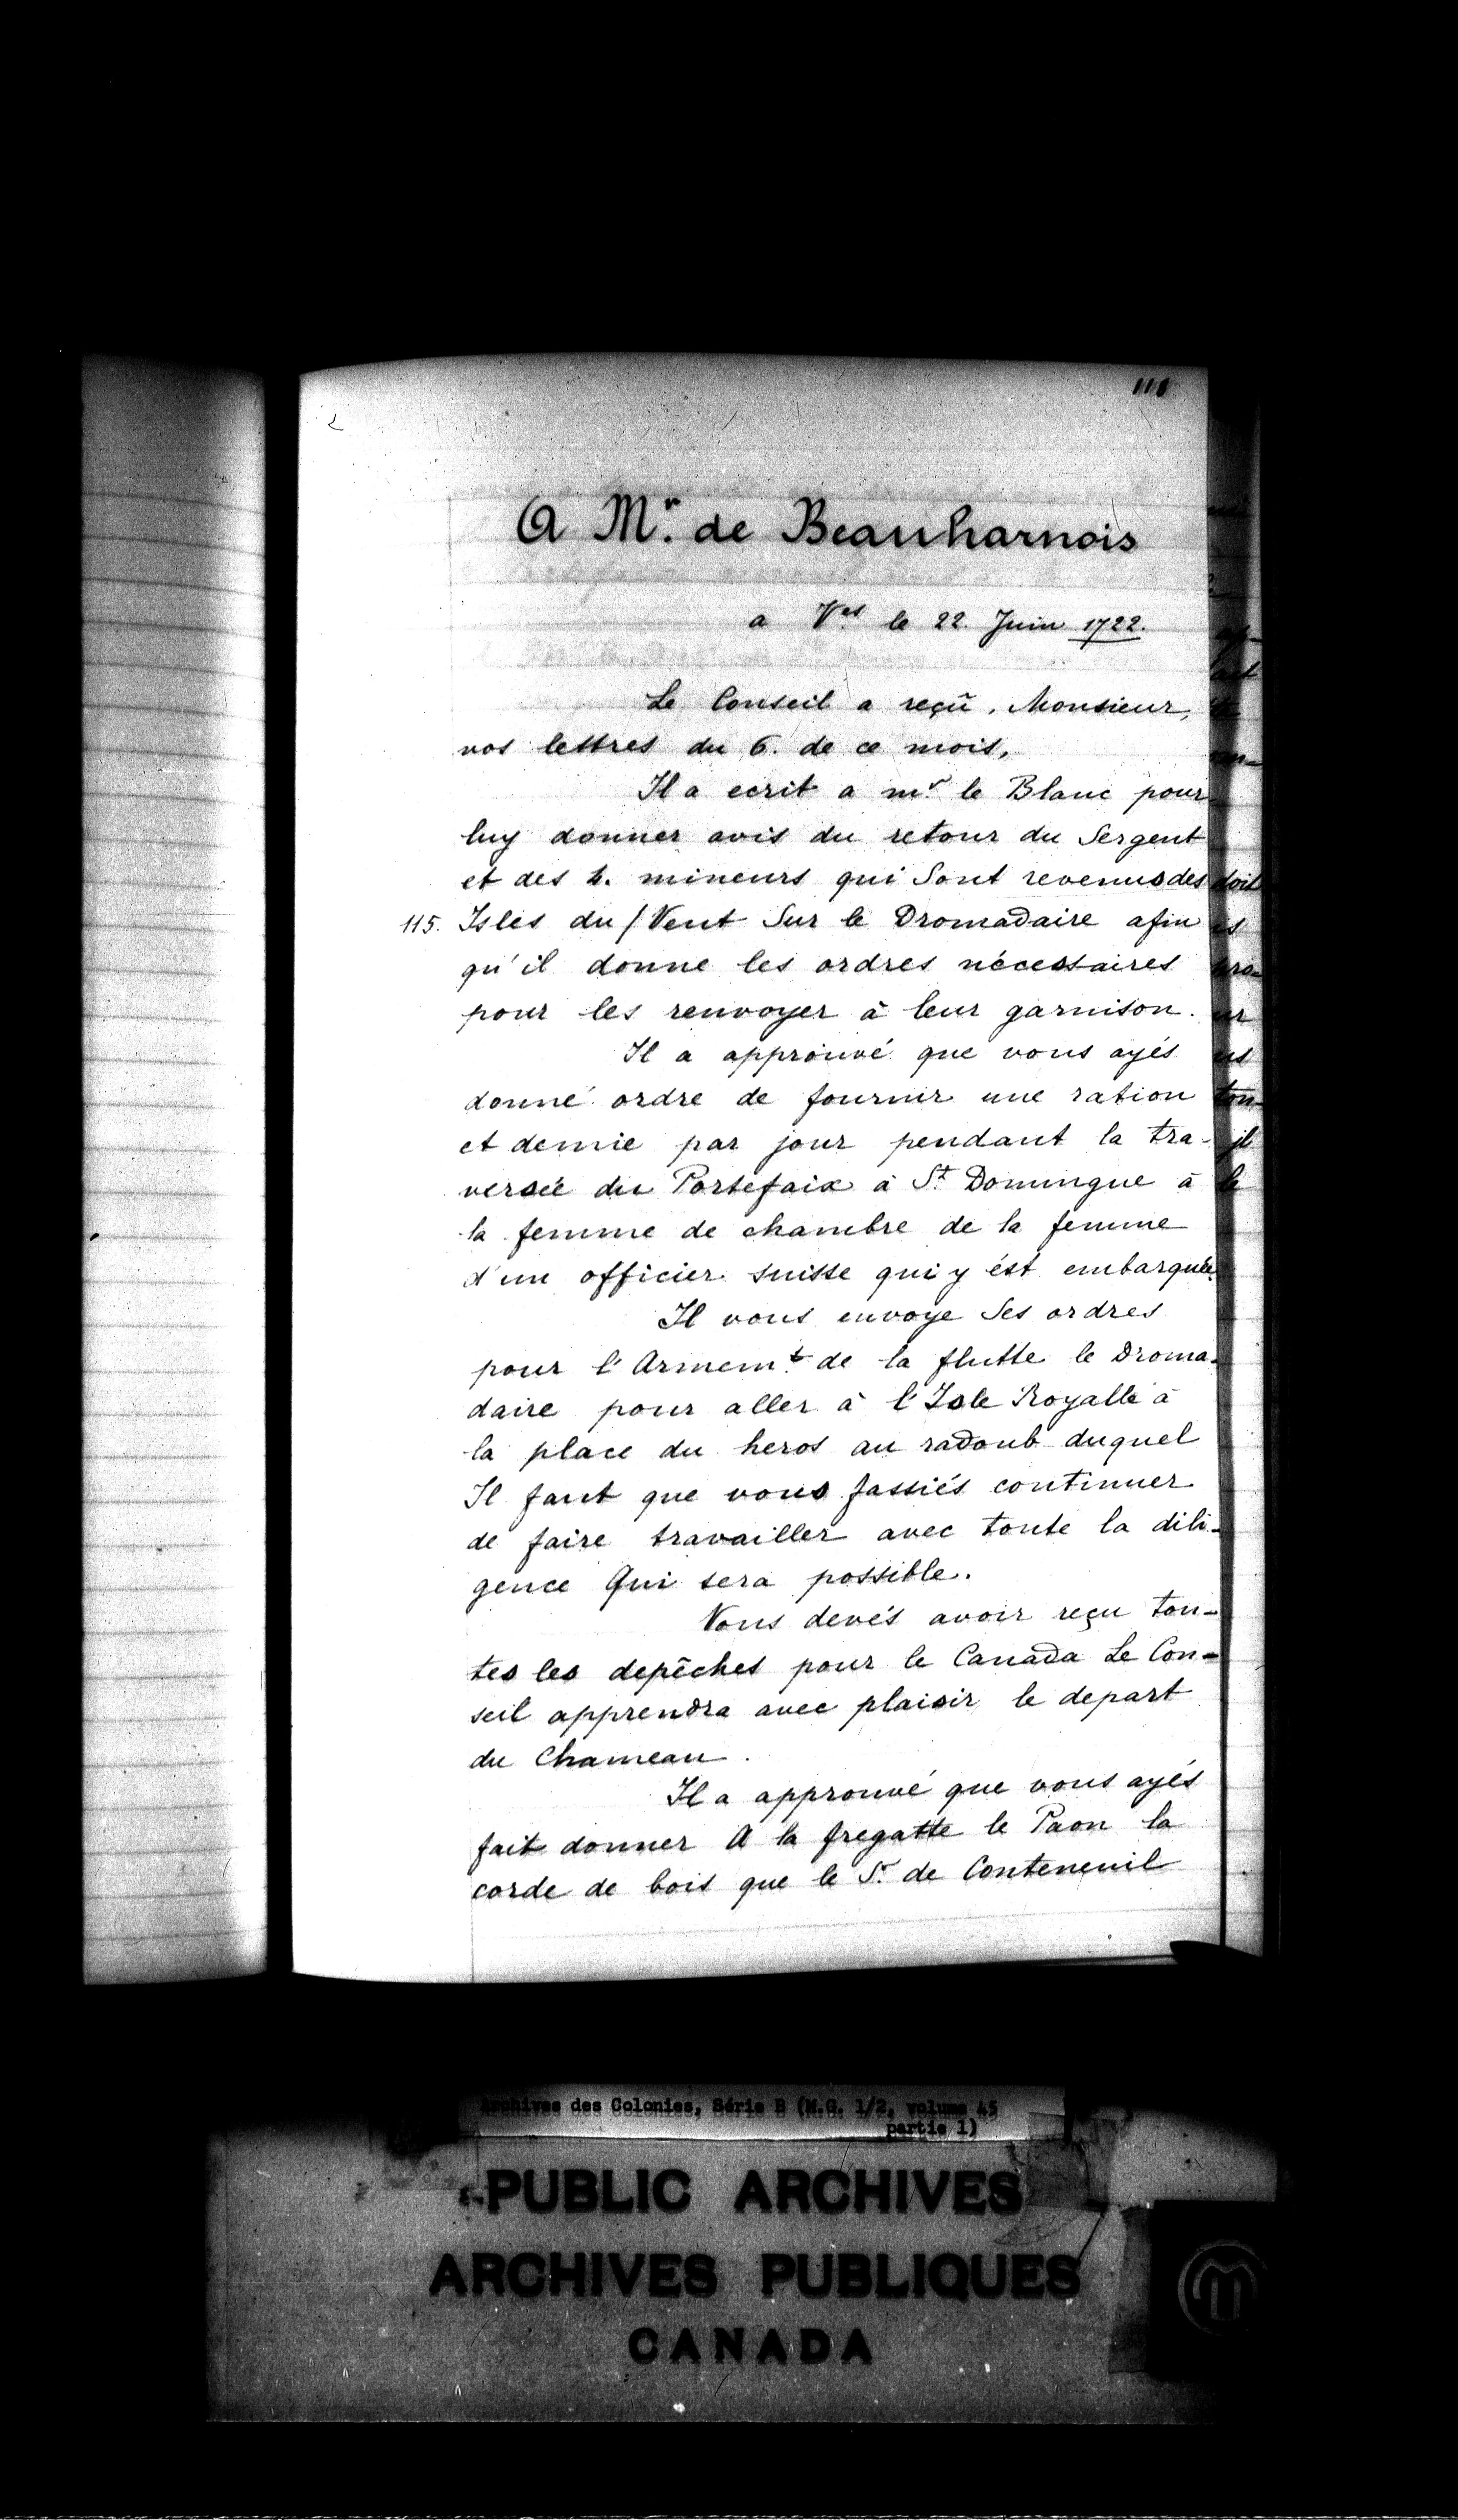 A Mr. de Beauharnois
a Ves le 22 Juin 1722.
Le Conseil a reçû, Monsieur,
vos lettres du 6. de ce mois,
Il a ecrit a mr le Blanc pour
luy donner avis du retour du Sergent
et des mineurs qui Sont revenus des
115. Isles du / Vent Sur le Dromadaire afin
qu'il donne les ordres nécessaires
pour les renvoyer à leur garnison.
Il a approuvé que vous ayés
donné ordre de fournir une ration
et demie par jour pendant la tra-
versée du Portefaix à St Domingue à
la femme de chambre de la femme
d'un officier suisse qui y ést embarquée.
Il vous envoye Ses ordres
pour l'Armemt de la flutte le Droma-
daire pour aller à l'Isle Royalle à
la place du heros au radoub duquel
Il faut que vous fassiés continuer
de faire travailler avec toute la dili-
gence Qui sera possible.
Vous devés avoir reçu tou-
tes les depêches pour le Canada Le Con-
seil apprendra avec plaisir le depart
du Chameau.
Il a approuvé que vous ayés
fait donner A la fregatte le Paon la
corde de bois que le Sr de Conteneuil
Archives des Colonies, Série B (M.G. 1/2, volume 45
partie 1)
PUBLIC ARCHIVES
ARCHIVES PUBLIQUES
CANADA